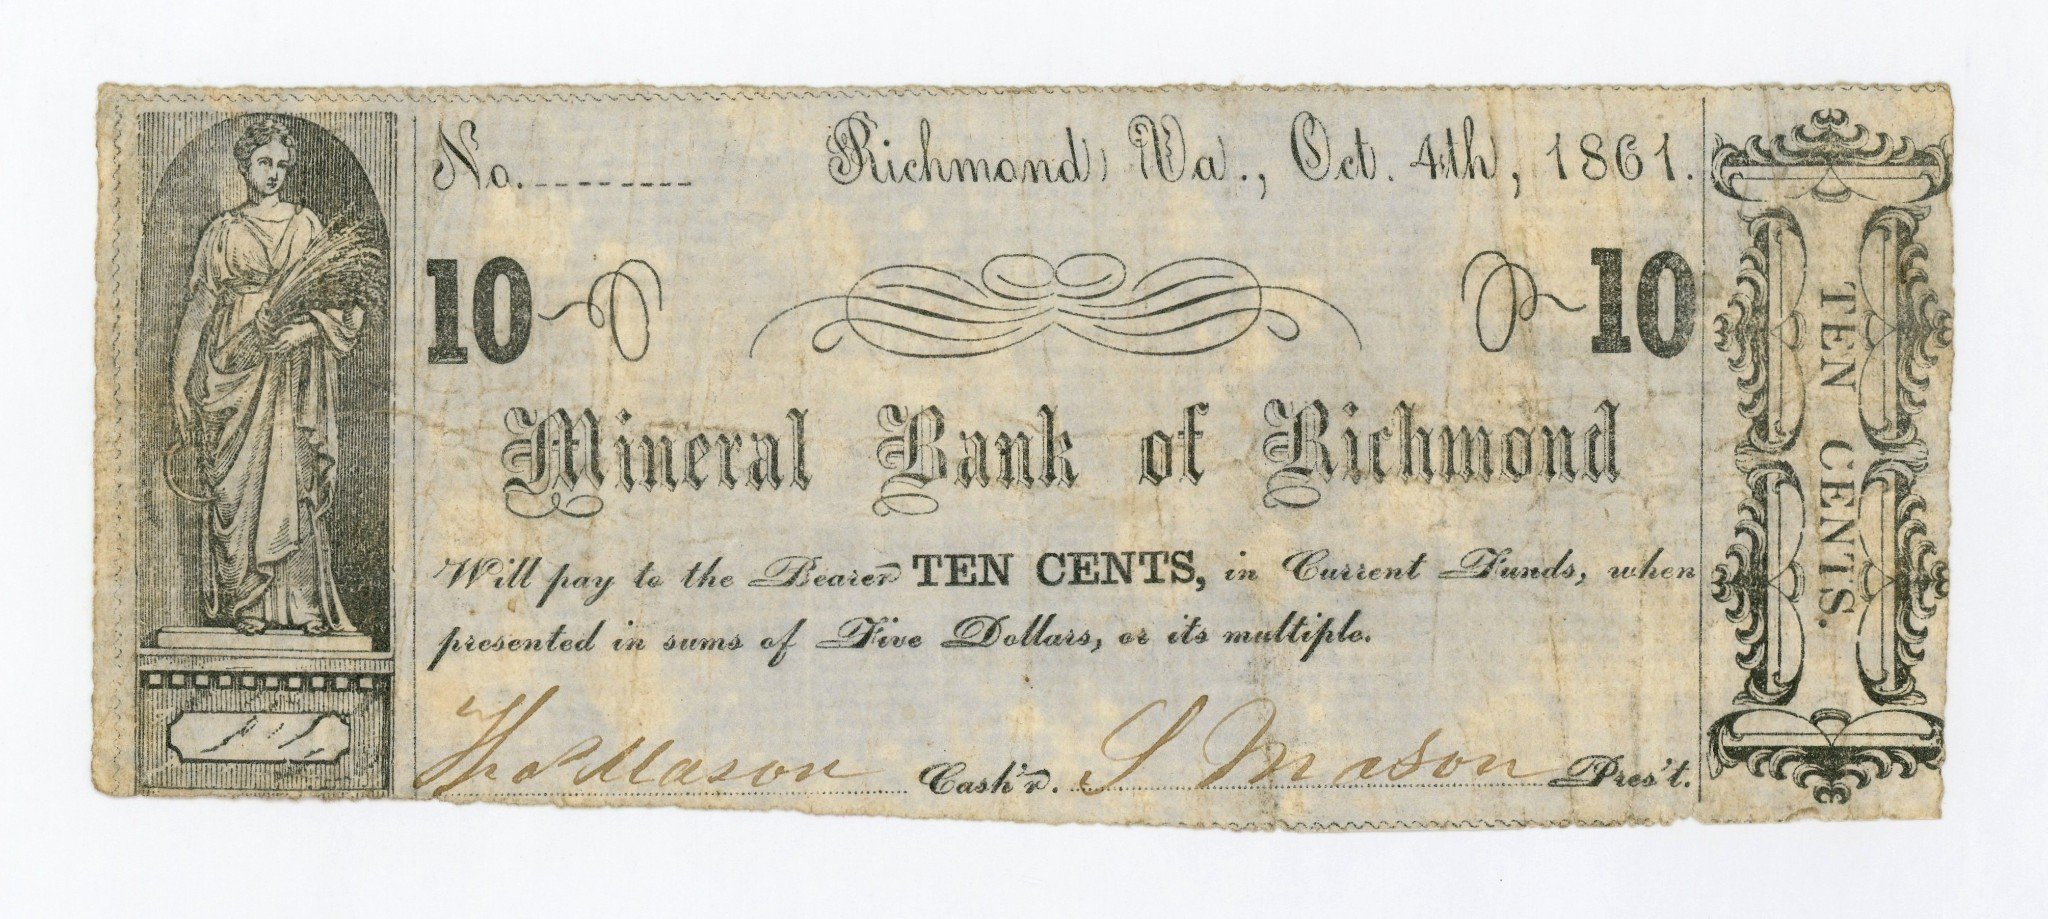 No.
Richmond, Va., Oct. 4th, 1861.
10
10
Mineral Bank of Richmond
Will pay to the Bearer TEN CENTS, in Current Funds, when
presented in sums of Five Dollars, or its multiple.
Thos Mason Cash'r. S Mason Pres't.
TEN CENTS.